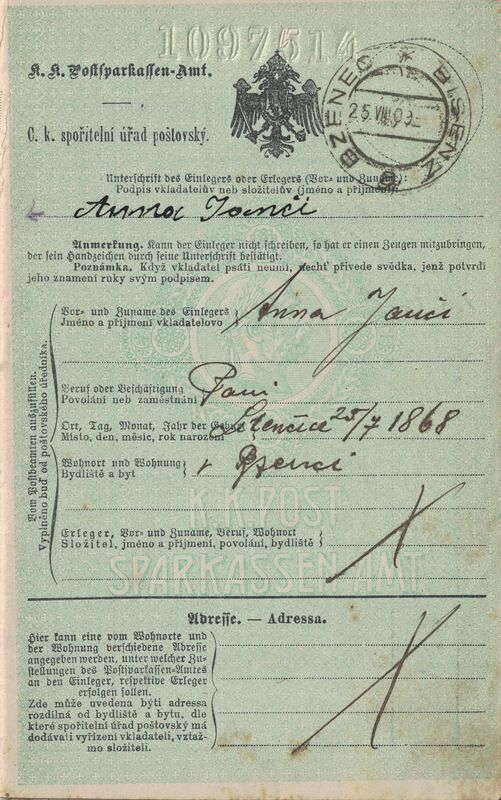 1097514
K. K. Postsparkassen-Amt.
C. k. spořitelní úřad poštovský.
BZENEC * BISENZ
25 VII 09
Unterschrift des Einlegers oder Erlegers (Vor- und Zuname):
Podpis vkladatelův neb složitelův (jméno a příjmení):
Anna Jančí
Anmerkung. Kann der Einleger nicht schreiben, so hat er einen Zeugen mitzubringen,
der sein Handzeichen durch seine Unterschrift bestätigt.
Poznámka. Když vkladatel psáti neumí, nechť přivede svědka, jenž potvrdí
jeho znamení ruky svým podpisem.
Vom Postbeamten auszufüllen.
Vyplněno buď od poštovského úředníka.
Vor- und Zuname des Einlegers
Jméno a příjmení vkladatelovo
Anna Jančí
Beruf oder Beschäftigung
Povolání neb zaměstnání
Paní
Ort, Tag, Monat, Jahr der Geburt
Místo, den, měsíc, rok narození
25/7 1868
Wohnort und Wohnung
Bydliště a byt
v Bzenci
K. K. POST
SPARKASSEN-AMT
Erleger, Vor- und Zuname, Beruf, Wohnort
Složitel, jméno a příjmení, povolání, bydliště
Adresse. — Adressa.
Hier kann eine vom Wohnorte und
der Wohnung verschiedene Adresse
angegeben werden, unter welcher Zu-
stellungen des Postsparkassen-Amtes
an den Einleger, respektive Erleger
erfolgen sollen.
Zde může uvedena býti adressa
rozdílná od bydliště a bytu, dle
které spořitelní úřad poštovský má
dodávati vyřízení vkladateli, vztaž-
mo složiteli.